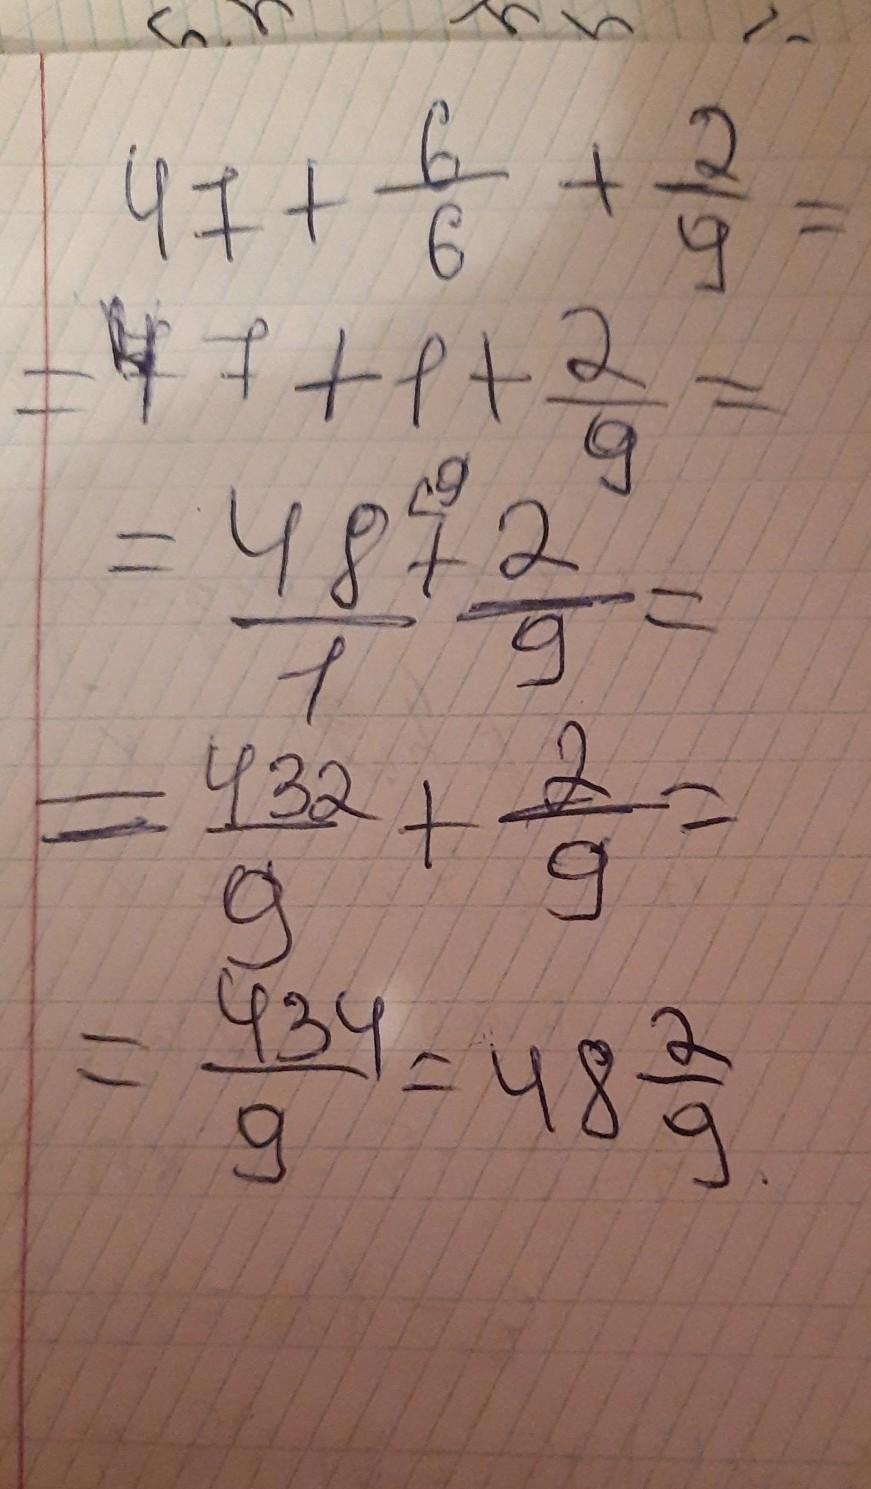 47 + 6/6 + 2/9 =
= 47 + 1 + 2/9 =
= 48/1 ⁽⁹ + 2/9 =
= 432/9 + 2/9 =
= 434/9 = 48 2/9.